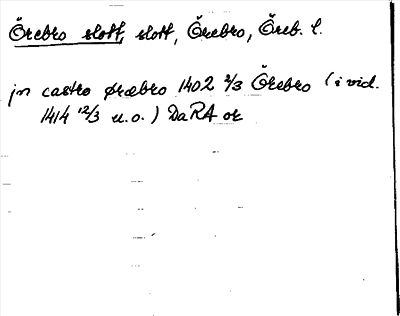 Örebro slott, slott, Örebro, Öreb. l.
jn castro ørebro 1402 2/3 Örebro (i vid.
1414 12/3 u.o.) DaRA or